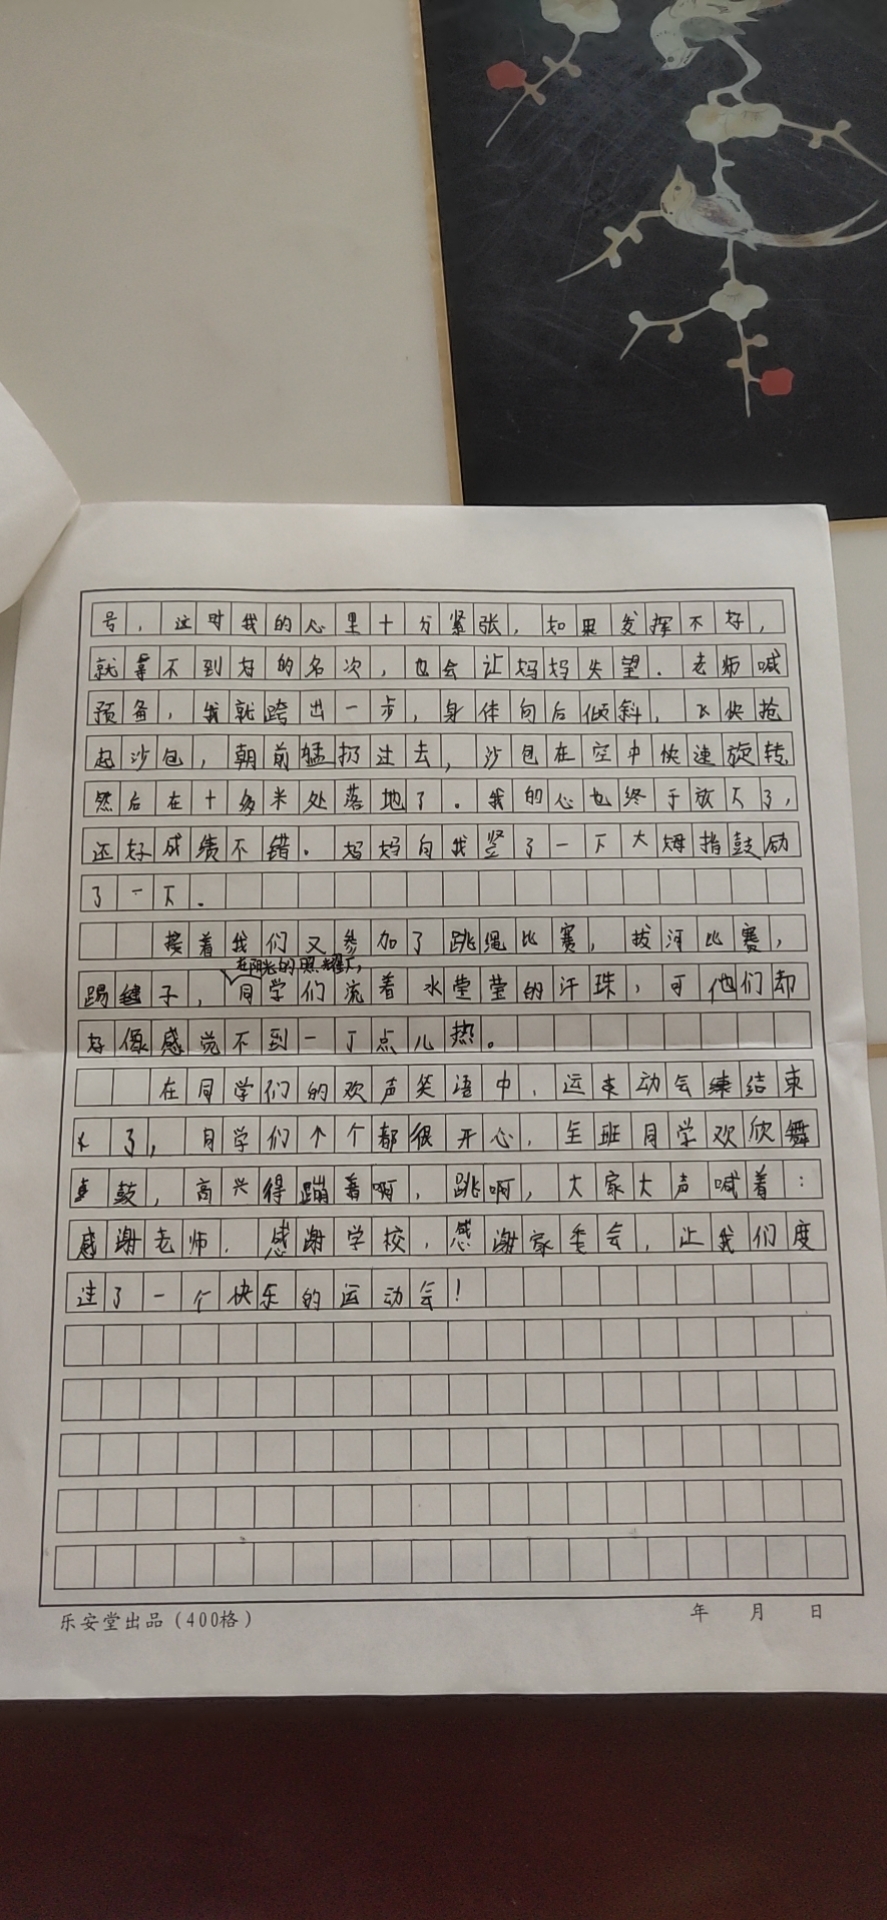 号，这时我的心里十分紧张，如果发挥不好，
就拿不到好的名次，也会让妈妈失望．老师喊
预备，我就跨出一步，身体向后倾斜，飞快抢
起沙包，朝前猛扔过去，沙包在空中快速旋转
然后在十多米处落地了．我的心也终于放下了，
还好成绩不错．妈妈向我竖了一下大姆指鼓励
了一下．
接着我们又参加了跳绳比赛，拔河比赛，
在阳光的照耀下，
踢毽子，同学们流着水莹莹的汗珠，可他们却
好像感觉不到一丁点儿热。
在同学们的欢声笑语中，运动会结束
了，同学们个个都很开心．全班同学欢欣舞
鼓，高兴得蹦着啊，跳啊，大家大声喊着：
感谢老师．感谢学校，感谢家委会，让我们度
过了一个快乐的运动会！
乐安堂出品（400格） 年 月 日